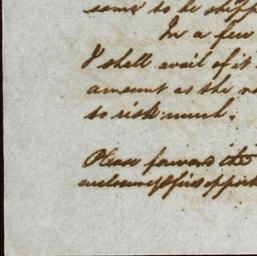 some to be shipp
In a few
I shall avail of it
amount as the
to risk much.
Please forward the
enclosures first opport